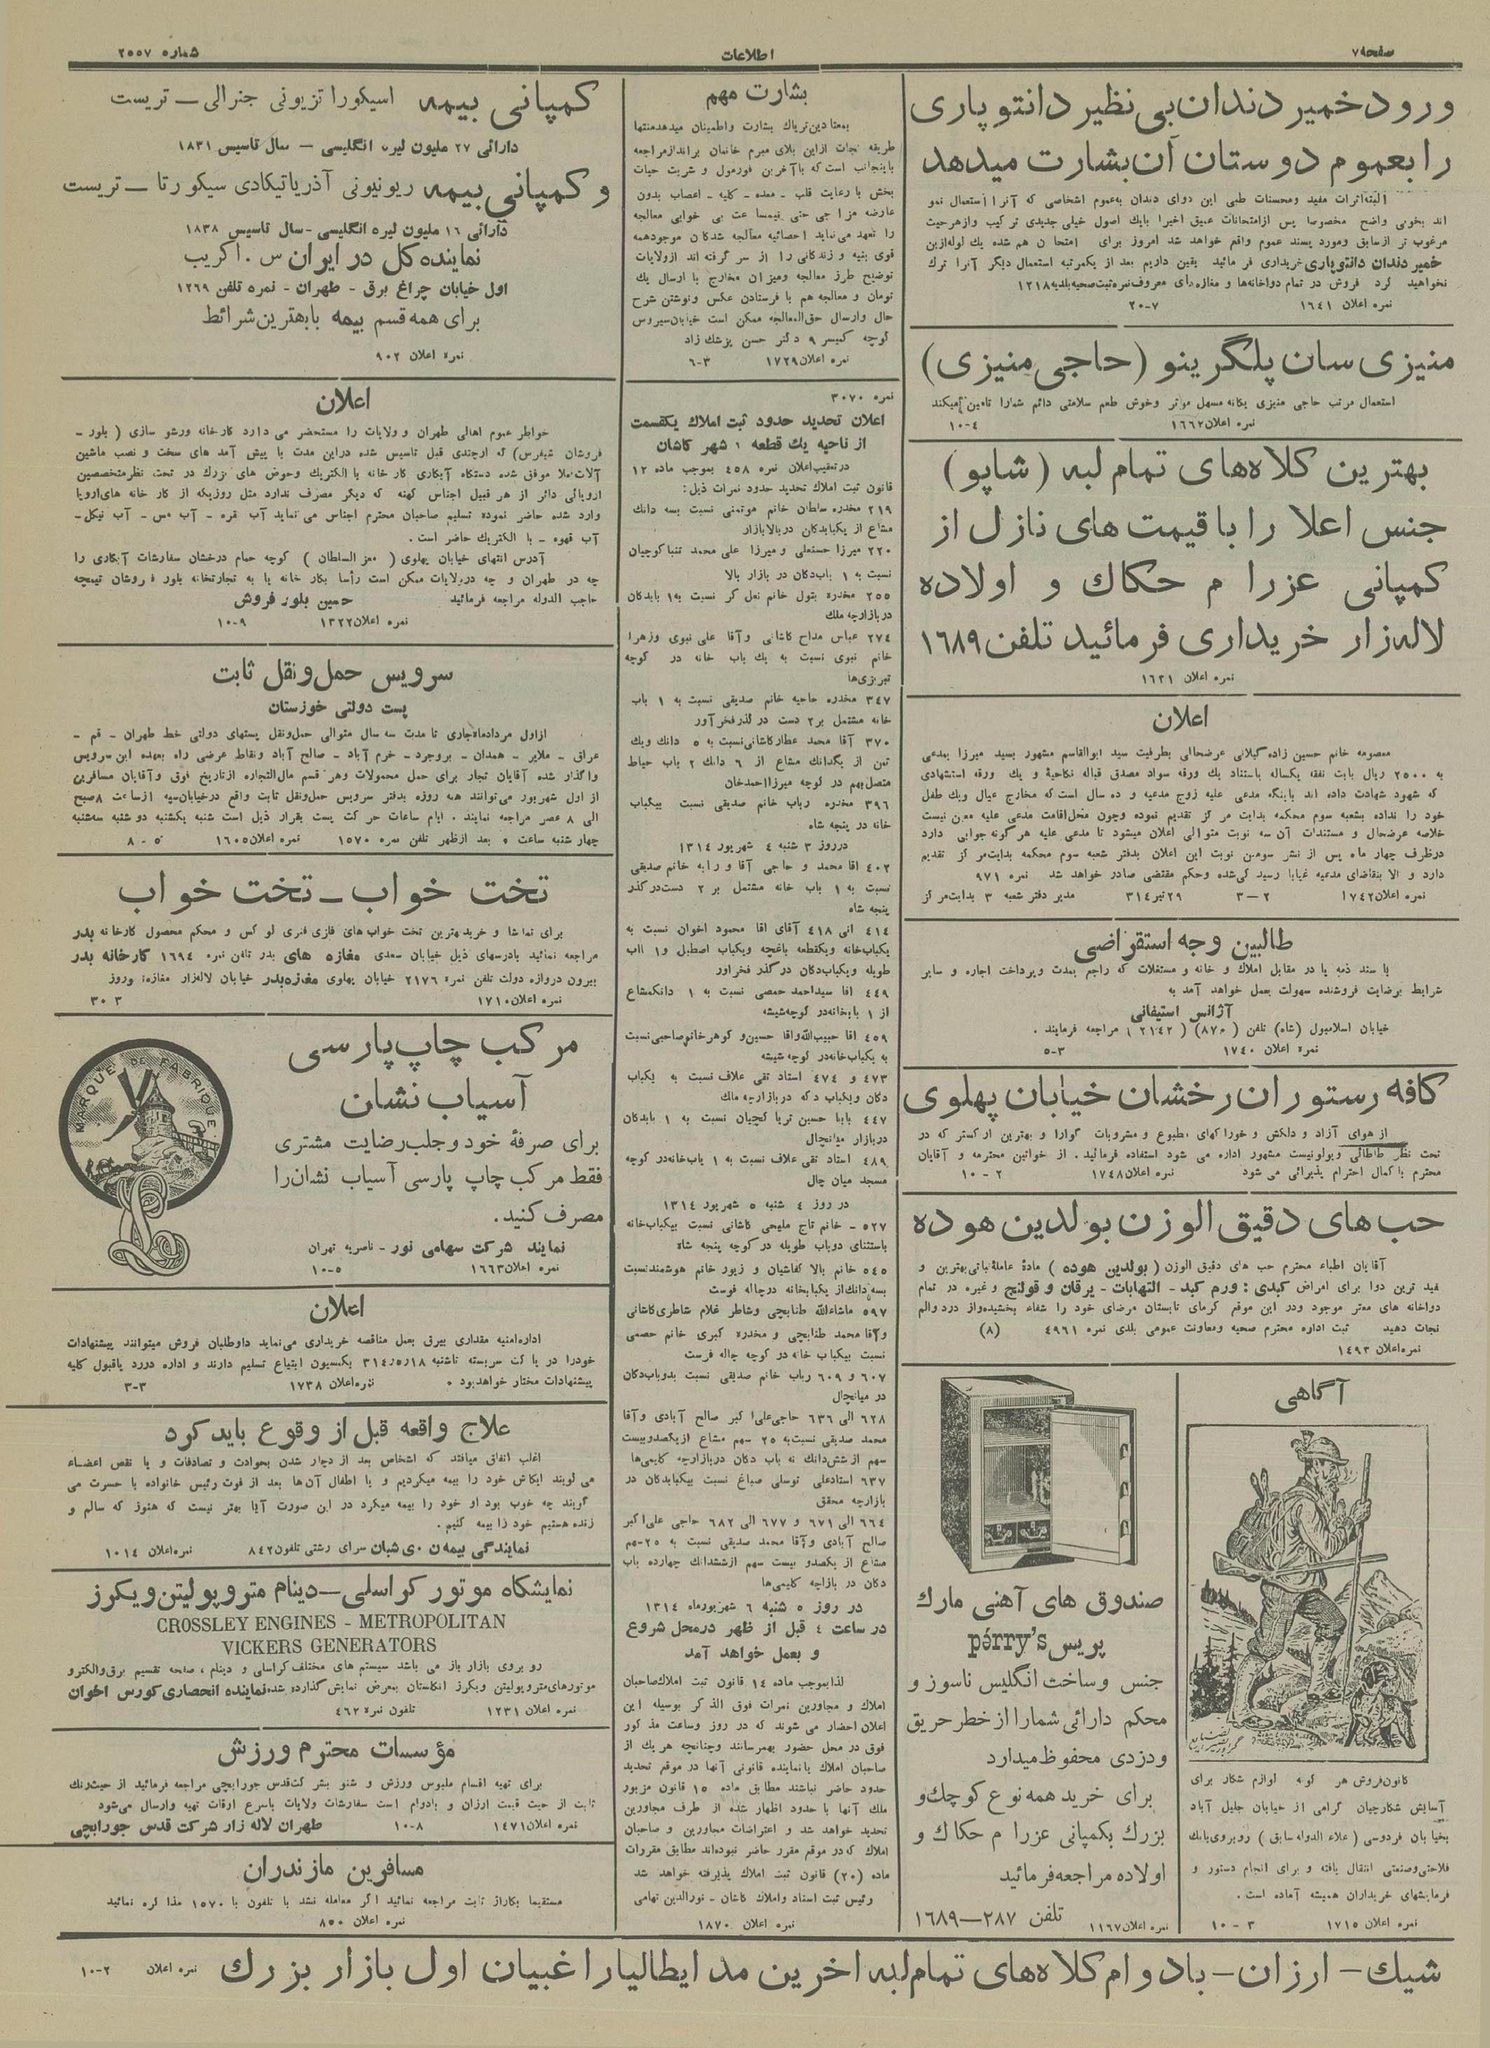 صفحه ۷
اطلاعات
شماره ۲۵۵۷
ورود خمیر دندان بی نظیر دانتو پاری
را بعموم دوستان آن بشارت میدهد
البته اثرات مفید ومحسنات طبی این دوای دندان به عموم اشخاصی که آنرا استعمال نمو
اند بخوبی واضح مخصوصا پس ازامتحانات عمیق اخیرا بایک اصول خیلی جدیدی ترکیب وازهرحیث
مرغوب تر ازسابق ومورد پسند عموم واقع خواهد شد امروز برای امتحان هم شده یك لوله ازین
خمیر دندان دانتوپاری خریداری فرمائید یقین داریم بعد از یکمرتبه استعمال دیگر آنرا ترك
نخواهید کرد فروش در تمام دواخانه‌ها و مغازه‌های معروف نمره ثبت صحیه بلدیه ۱۲۱۸
نمره اعلان ۱۶۴۱ ۷-۲۰
منیزی سان پلگرینو (حاجی منیزی)
استعمال مرتب حاجی منیزی یگانه مسهل موثر وخوش طعم سلامتی دائم شمارا تامین میکند
نمره اعلان ۱۶۶۲ ۴-۱۰
بهترین کلاه‌های تمام لبه (شاپو)
جنس اعلا را با قیمت های نازل از
کمپانی عزرا م حکاك و اولاده
لاله‌زار خریداری فرمائید تلفن ۱۶۸۹
نمره اعلان ۱۶۲۱
اعلان
معصومه خانم حسین زاده گیلانی عرضحالی بطرفیت سید ابوالقاسم مشهور بسید میرزا بمدعی
به ۲۵۰۰ ریال بابت نفقه یکساله باستناد یك ورقه سواد مصدق قباله نکاحیه و یك ورقه استشهادی
که شهود شهادت داده اند باینکه مدعی علیه زوج مدعیه و ده سال است که مخارج عیال ویك طفل
خود را نداده بشعبه سوم محکمه بدایت مرکز تقدیم نموده وچون محل اقامت مدعی علیه معین نیست
خلاصه عرضحال و مستندات آن سه نوبت متوالی اعلان میشود تا مدعی علیه هرگونه جوابی دارد
درظرف چهار ماه پس از نشر سومین نوبت این اعلان بدفتر شعبه سوم محکمه بدایت مرکز تقدیم
دارد و الا بتقاضای مدعیه غیابا رسیدگی شده وحکم مقتضی صادر خواهد شد نمره ۹۷۱
نمره اعلان ۱۷۴۲ ۲-۳ ۲۹ تیر ۳۱۴ مدیر دفتر شعبه ۳ بدایت مرکز
طالبین وجه استقراضی
با سند ذمه یا در مقابل املاك و خانه و مستغلات که راجع بمدت وپرداخت اجاره و سایر
شرایط برضایت فروشنده سهولت بعمل خواهد آمد به
آژانس استیفانی
خیابان اسلامبول (شاه) تلفن (۸۷۰) (۲۱۴۲) مراجعه فرمایند .
نمره اعلان ۱۷۴۰ ۳-۵
کافه رستوران رخشان خیابان پهلوی
از هوای آزاد و دلکش و خوراکهای مطبوع و مشروبات گوارا و بهترین ارکستر که در
تحت نظر طاطائی ویولونیست مشهور اداره می شود استفاده فرمائید . از خواتین محترمه و آقایان
محترم باکمال احترام پذیرائی می شود نمره اعلان ۱۷۴۸ ۲-۱۰
حب های دقیق الوزن بولدین هوده
آقایان اطباء محترم حب های دقیق الوزن (بولدین هوده) مادۀ عاملۀ نباتی بهترین و
مفید ترین دوا برای امراض کبدی : ورم کبد - التهابات - یرقان و قولنج و غیره در تمام
دواخانه های معتبر موجود ودر این موقع گرمای تابستان مرضای خود را شفاء بخشیده واز درد والم
نجات دهید ثبت اداره محترم صحیه ومعاونت عمومی بلدی نمره ۴۹۶۱ (۸)
نمره اعلان ۱۴۹۳
آگاهی
کانون فروش هر گونه لوازم شکار برای
آسایش شکارچیان گرامی از خیابان جلیل آباد
بخیابان فردوسی (علاء الدوله سابق) روبروی بانك
فلاحتی وصنعتی انتقال یافته و برای انجام دستور و
فرمایشهای خریداران همیشه آماده است .
نمره اعلان ۱۷۱۵ ۳-۱۰
صندوق های آهنی مارك
پریس pérry's
جنس وساخت انگلیس ناسوز و
محکم دارائی شمارا از خطر حریق
و دزدی محفوظ میدارد
برای خرید همه نوع کوچك و
بزرك بکمپانی عزرا م حکاك و
اولاده مراجعه فرمائید
تلفن ۲۸۷-۱۶۸۹ نمره اعلان ۱۱۶۷
بشارت مهم
بمعتادین تریاك بشارت واطمینان میدهد منتها
طریقه نجات ازاین بلای مبرم خانمان برانداز مراجعه
باینجانب است که باآخرین فورمول و شربت حیات
بخش با رعایت قلب - معده - کلیه - اعصاب بدون
عارضه مزاجی حتی نیمساعت بی خوابی معالجه
را تعهد می نماید احصائیه معالجه شدگان موجود همه
قوی بنیه و زندگانی را از سر گرفته اند ازولایات
توضیح طرز معالجه ومیزان مخارج با ارسال یك
تومان و معالجه هم با فرستادن عکس ونوشتن شرح
حال وارسال حق المعالجه ممکن است خیابان سیروس
کوچه کمیسر ۹ دکتر حسن پزشك زاد
نمره اعلان ۱۷۲۹ ۳-۶
نمره ۳۰۷۰
اعلان تحدید حدود ثبت املاك یکقسمت
از ناحیه یك قطعه ۱ شهر کاشان
درتعقیب اعلان نمره ۴۵۸ بموجب ماده ۱۲
قانون ثبت املاك تحدید حدود نمرات ذیل :
۲۱۹ مخدره سلطان خانم موتمنی نسبت بسه دانك
مشاع از یکبابدکان دربالابازار
۲۲۰ میرزا حسنعلی و میرزا علی محمد تنباکوچیان
نسبت به ۱ باب دکان در بازار بالا
۲۵۵ مخدره بتول خانم نعل گر نسبت به ۱ بابدکان
دربازارچه ملك
۲۷۴ عباس مداح کاشانی وآقا علی نبوی وزهرا
خانم نبوی نسبت به یك باب خانه در کوچه
تبریزی‌ها
۳۴۷ مخدره حاجیه خانم صدیقی نسبت به ۱ باب
خانه مشتمل بر ۲ دست در گذر فخرآور
۳۷۰ آقا محمد عطار کاشانی نسبت به ۵ دانك ویك
ثمن از یکدانك مشاع از ۶ دانك ۲ باب حیاط
متصل بهم در کوچه میرزا احمدخان
۳۹۶ مخدره رباب خانم صدیقی نسبت بیکباب
خانه در پنجه شاه
درروز ۳ شنبه ۴ شهریور ۱۳۱۴
۴۰۲ اقا محمد و حاجی آقا و رابه خانم صدیقی
نسبت به ۱ باب خانه مشتمل بر ۲ دست درگذر
پنجه شاه
۴۱۴ الی ۴۱۸ آقای اقا محمود اخوان نسبت به
یکباب خانه ویکقطعه باغچه ویکباب اصطبل و ۱ باب
طویله ویکباب دکان در گذر فخراور
۴۴۹ اقا سید احمد حمصی نسبت به ۱ دانك مشاع
از ۱ بابخانه در کوچه شیشه
۴۵۹ اقا حبیب الله واقا حسین و گوهر خانم صاحبی نسبت
به یکباب خانه در کوچه شیشه
۴۷۳ و ۴۷۴ استاد تقی علاف نسبت به یکباب
دکان ویکباب دکه در بازارچه ملك
۴۴۷ بابا حسین تریاکچیان نسبت به ۱ بابدکان
دربازار میانچال
۴۸۹ استاد تقی علاف نسبت به ۱ باب خانه در کوچه
مسجد میان چال
در روز ۴ شنبه ۵ شهریور ۱۳۱۴
۵۲۷ - خانم تاج ملیحی کاشانی نسبت بیکباب خانه
باستثنای دوباب طویله در کوچه پنجه شاه
۵۴۵ خانم بالا کفاشیان و زیور خانم هوشمند نسبت
بسه دانك از یکبابخانه درچاله فوست
۵۹۷ ماشاءالله طنابچی وشاطر غلام شاطری کاشانی
وآقا محمد طنابچی و مخدره کبری خانم حصمی
نسبت بیکباب خانه در کوچه چاله فرست
۶۰۷ و ۶۰۹ رباب خانم صدیقی نسبت بدوباب دکان
در میانچال
۶۲۸ الی ۶۳۶ حاجی علی اکبر صالح آبادی وآقا
محمد صدیقی نسبت به ۲۵ سهم مشاع از یکصدوبیست
سهم از شش دانك نه باب دکان دربازارچه کلیمی‌ها
۶۳۷ استاد علی توسلی صباغ نسبت بیکبابدکان در
بازارچه محقق
۶۶۴ الی ۶۷۱ و ۶۷۷ الی ۶۸۲ حاجی علی اکبر
صالح آبادی وآقا محمد صدیقی نسبت به ۲۵ سهم
مشاع از یکصدو بیست سهم از ششدانك چهارده باب
دکان در بازارچه کلیمی‌ها
در روز ۵ شنبه ۶ شهریورماه ۱۳۱۴
در ساعت ۴ قبل از ظهر درمحل شروع
و بعمل خواهد آمد
لذا بموجب ماده ۱۴ قانون ثبت املاك صاحبان
املاك و مجاورین نمرات فوق الذکر بوسیله این
اعلان احضار می شوند که در روز وساعت مذکور
فوق در محل حضور بهمرسانند وچنانچه هریك از
صاحبان املاك یا نماینده قانونی آنها در موقع تحدید
حدود حاضر نباشند مطابق ماده ۱۵ قانون مزبور
ملك آنها با حدود اظهار شده از طرف مجاورین
تحدید خواهد شد و اعتراضات مجاورین و صاحبان
املاك که در موقع مقرر حاضر نبوده‌اند مطابق مقررات
ماده (۲۰) قانون ثبت املاك پذیرفته خواهد شد
رئیس ثبت اسناد واملاك کاشان - نورالدین تهامی
نمره اعلان ۱۸۷۰
کمپانی بیمه اسیکوراتزیونی جنرالی - تریست
دارائی ۲۷ ملیون لیره انگلیسی - سال تاسیس ۱۸۳۱
و کمپانی بیمه ریونیونی آدریاتیکادی سیکورتا - تریست
دارائی ۱۶ ملیون لیره انگلیسی - سال تاسیس ۱۸۳۸
نماینده کل در ایران س . اکریب
اول خیابان چراغ برق - طهران - نمره تلفن ۱۲۶۹
برای همه قسم بیمه با بهترین شرائط
نمره اعلان ۹۰۲
اعلان
خواطر عموم اهالی طهران و ولایات را مستحضر می دارد کارخانه ورشو سازی (بلور-
فروشان شیفرس) که ازچندی قبل تاسیس شده دراین مدت با پیش آمد های سخت و نصب ماشین
آلات عملا موفق شده دستگاه آبکاری کار خانه با الکتریك وحوض های بزرك در تحت نظر متخصصین
اروپائی دائر از هر قبیل اجناس کهنه که دیگر مصرف ندارد مثل روزیکه از کار خانه های اروپا
وارد شده حاضر نموده تسلیم صاحبان محترم اجناس می نماید آب نقره - آب مس - آب نیکل -
آب قهوه - با الکتریك حاضر است .
آدرس انتهای خیابان پهلوی (معز السلطان) کوچه حمام درخشان سفارشات آبکاری را
چه در طهران و چه درولایات ممکن است رأسا بکار خانه یا به تجارتخانه بلور فروشان تیمچه
حاجب الدوله مراجعه فرمائید حسین بلور فروش
نمره اعلان ۱۳۲۲ ۹-۱۰
سرویس حمل و نقل ثابت
پست دولتی خوزستان
ازاول مردادماه جاری تا مدت سه سال متوالی حمل ونقل پستهای دولتی خط طهران - قم -
عراق - ملایر - همدان - بروجرد - خرم آباد - صالح آباد ونقاط عرضی راه بعهده این سرویس
واگذار شده آقایان تجار برای حمل محمولات وهر قسم مال التجاره ازتاریخ فوق وآقایان مسافرین
از اول شهریور می‌توانند همه روزه بدفتر سرویس حمل ونقل ثابت واقع درخیابان سپه ازساعت ۸ صبح
الی ۸ عصر مراجعه نمایند . ایام ساعات حرکت پست بقرار ذیل است شنبه یکشنبه دو شنبه سه شنبه
چهار شنبه ساعت ۶ بعد ازظهر تلفن نمره ۱۵۷۰ نمره اعلان ۱۶۰۵ ۵-۸
تخت خواب - تخت خواب
برای تماشا و خرید بهترین تخت خواب های فلزی فنری لوکس و محکم محصول کارخانه بدر
مراجعه نمائید بادرسهای ذیل خیابان سعدی مغازه های بدر تلفن نمره ۱۶۹۴ کارخانه بدر
بیرون دروازه دولت تلفن نمره ۲۱۷۶ خیابان پهلوی مغازه بدر خیابان لاله‌زار مغازه نوروز
نمره اعلان ۱۷۱۰ ۳ ۳۰
مرکب چاپ پارسی
آسیاب نشان
MARQUE DE FABRIQUE
برای صرفۀ خود و جلب رضایت مشتری
فقط مرکب چاپ پارسی آسیاب نشان را
مصرف کنید.
نمایند شرکت سهامی نور - ناصریه تهران
نمره اعلان ۱۶۶۳ ۵-۱۰
اعلان
اداره امنیه مقداری بیرق بعمل مناقصه خریداری می‌نماید داوطلبان فروش میتوانند پیشنهادات
خودرا در پاکت سربسته تاشنبه ۳۱۴/۵/۱۸ بکمسیون ابتیاع تسلیم دارند و اداره دررد یاقبول کلیه
پیشنهادات مختار خواهد بود . نمره اعلان ۱۷۳۸ ۳-۳
علاج واقعه قبل از وقوع باید کرد
اغلب اتفاق میافتد که اشخاص بعد از دچار شدن بحوادث و تصادفات و یا نقص اعضاء
می گویند ایکاش خود را بیمه میکردیم و یا اطفال آن‌ها بعد از فوت رئیس خانواده با حسرت می
گویند چه خوب بود او خود را بیمه میکرد در این صورت آیا بهتر نیست که هنوز که سالم و
زنده هستیم خود را بیمه کنیم .
نمایندگی بیمه سرای رشتی تلفون ۸۴۲ نمره اعلان ۱۰۱۴
نمایشگاه موتور کراسلی - دینام متروپولیتن ویکرز
CROSSLEY ENGINES - METROPOLITAN
VICKERS GENERATORS
رو بروی بازار باز می باشد سیستم های مختلف کراسلی و دینام ، صفحه تقسیم برق والکترو
موتورهای متروپولیتن ویکرز انگلستان بمعرض نمایش گذارده شده نماینده انحصاری کورس اخوان
نمره اعلان ۱۲۳۱ تلفون نمره ۴۶۲
مؤسسات محترم ورزش
برای تهیه اقسام ملبوس ورزش و شنو بشرکت قدس جورابچی مراجعه فرمائید از حیث رنك
ثابت از حیث قیمت ارزان و بادوام است سفارشات ولایات باسرع اوقات تهیه وارسال می‌شود
نمره اعلان ۱۴۷۱ ۸-۱۰ طهران لاله زار شرکت قدس جورابچی
مسافرین مازندران
مستقیما بکاراژ ثابت مراجعه نمائید اگر معامله نشد با تلفون با ۱۵۷۰ مذاکره نمائید
نمره اعلان ۸۵۰
شیك - ارزان - بادوام کلاه‌های تمام لبه اخرین مد ایطالیا راغبیان اول بازار بزرك نمره اعلان ۲-۱۰